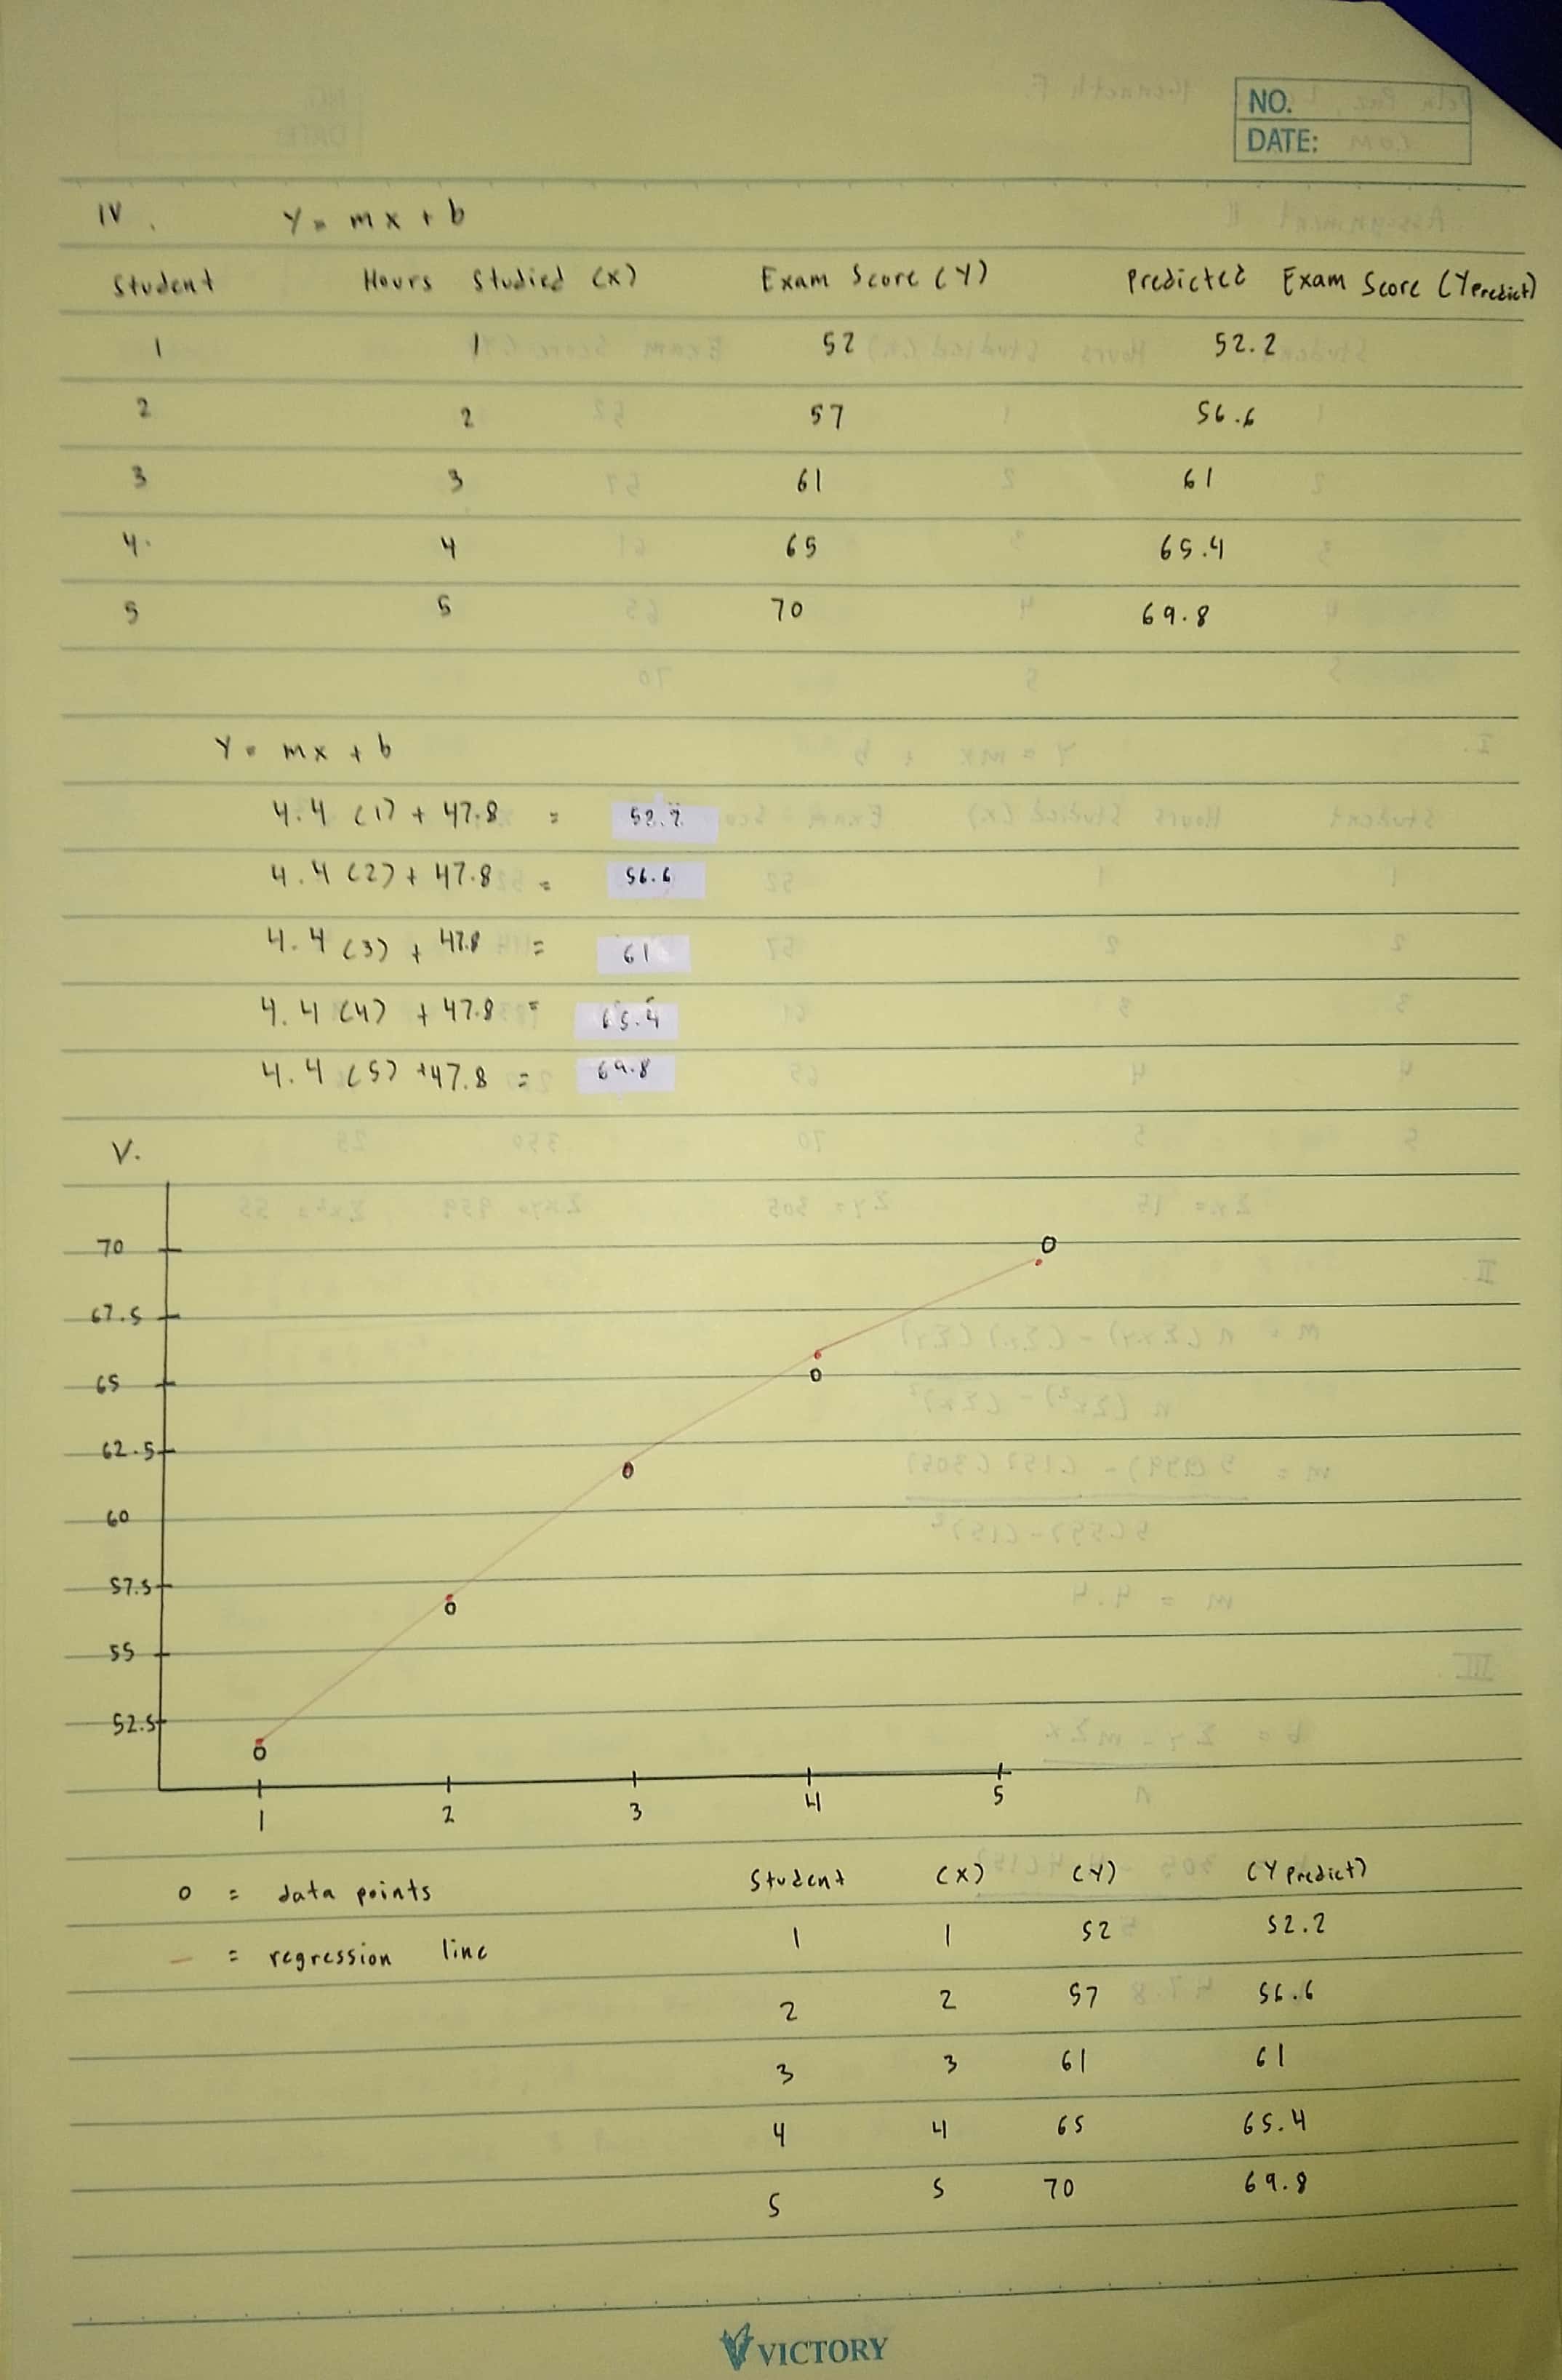 NO.
DATE:
IV. Y = mx + b
Student Hours Studied (X) Exam Score (Y) Predicted Exam Score (Y Predict)
1 1 52 52.2
2 2 57 56.6
3 3 61 61
4. 4 65 65.4
5 5 70 69.8
Y = mx + b
4.4 (1) + 47.8 = 52.2
4.4 (2) + 47.8 = 56.6
4.4 (3) + 47.8 = 61
4.4 (4) + 47.8 = 65.4
4.4 (5) + 47.8 = 69.8
V.
70
67.5
65
62.5
60
57.5
55
52.5
1 2 3 4 5
o = data points Student (X) (Y) (Y Predict)
1 1 52 52.2
— = regression line
2 2 57 56.6
3 3 61 61
4 4 65 65.4
5 5 70 69.8
VICTORY